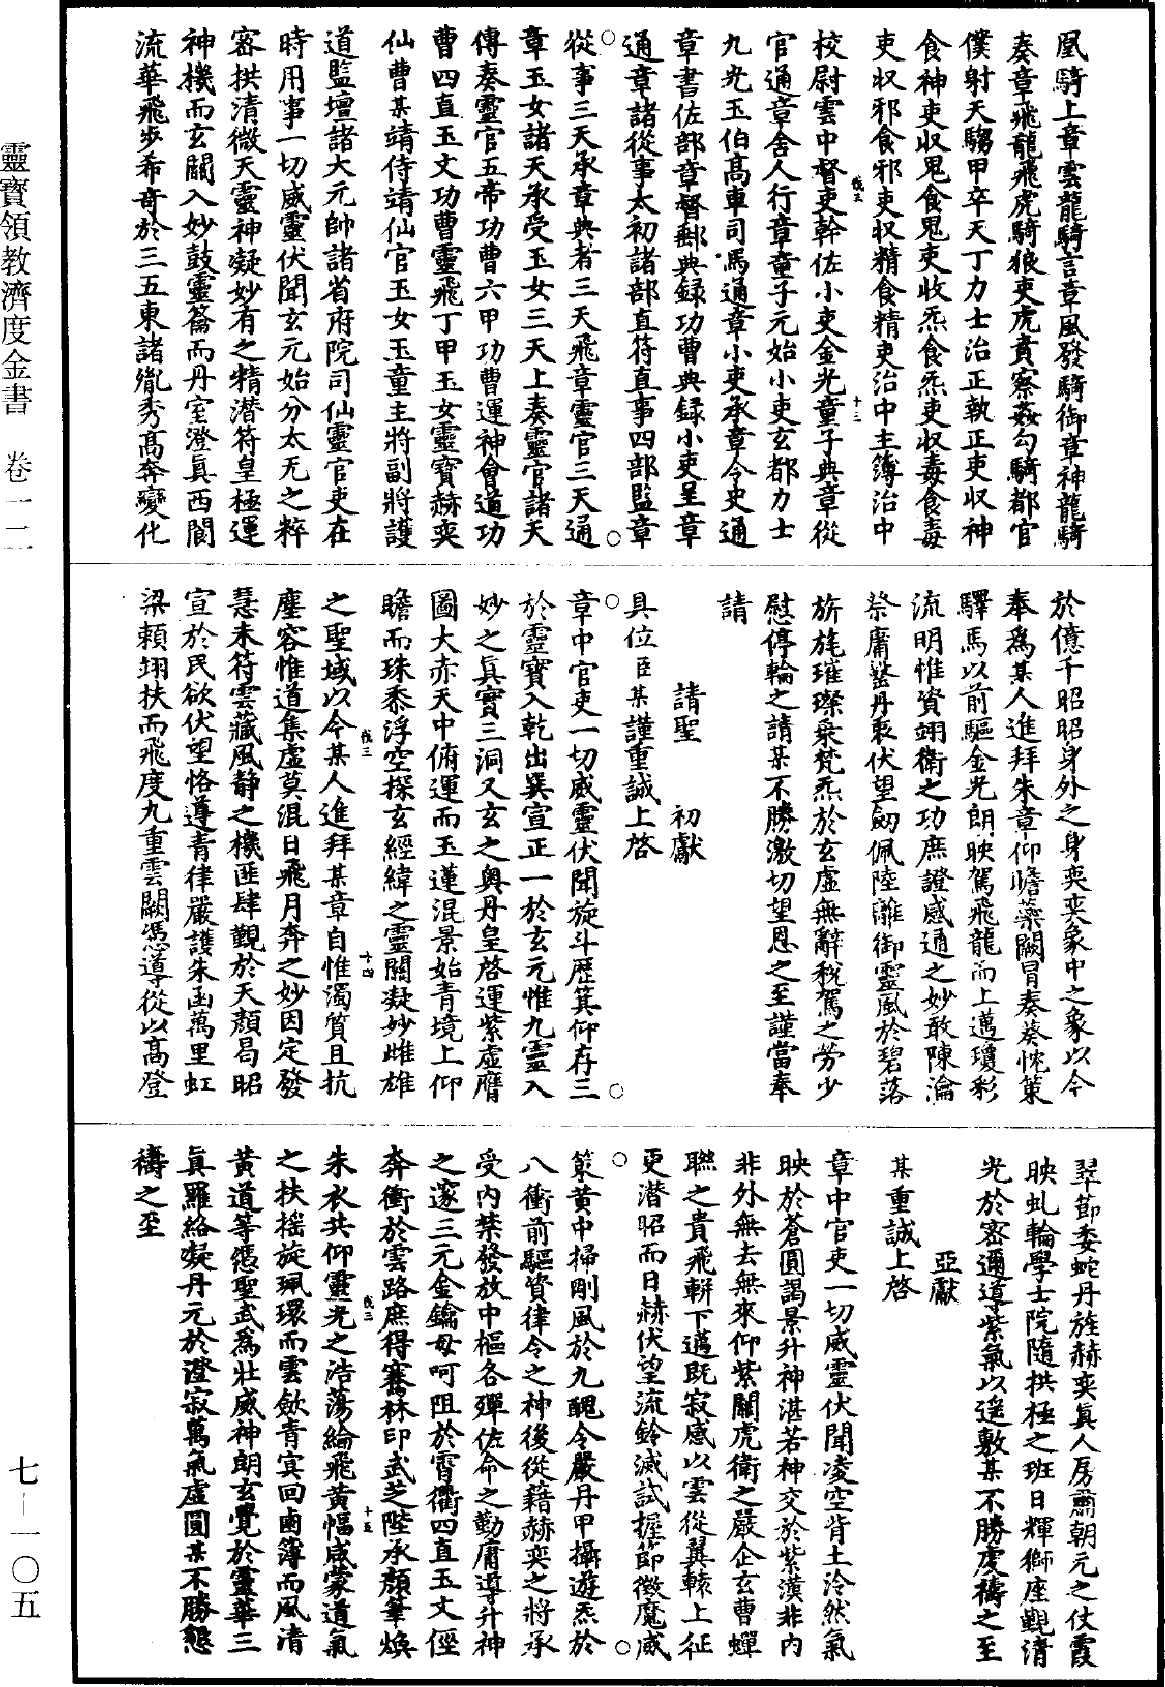 靈寶領教濟度金書　卷一一一
七—一〇五
凰騎上章雲龍騎言章風發騎御章神龍騎
奏章飛龍飛虎騎狼吏虎賁察姦勾騎都官
僕射天騶甲卒天丁力士治正執正吏収神
食神吏収鬼食鬼吏收炁食炁吏収毒食毒
吏収邪食邪吏収精食精吏治中主簿治中
校尉雲中督吏幹佐小吏金光童子典章從
官通章舍人行章童子元始小吏玄都力士
九光玉伯高車司馬通章小吏承章令史通
章書佐部章督郵典録功曹典録小吏呈章
通章諸從事太初諸部直符直事四部監章
從事三天承章典者三天飛章靈官三天通
章玉女諸天承受玉女三天上奏靈官諸天
傳奏靈官五帝功曹六甲功曹運神會道功
曹四直玉文功曹靈飛丁甲玉女靈寶赫奕
仙曹某靖侍靖仙官玉女玉童主將副將護
道監壇諸大元帥諸省府院司仙靈官吏在
時用事一切威靈伏聞玄元始分太无之粹
密拱清微天靈神凝妙有之精潜符皇極運
神機而玄關入妙鼓靈籥而丹室澄眞西閬
流華飛步希奇於三五東諸胤秀高奔變化
於億千昭昭身外之身奕奕象中之象以今
奉爲某人進拜朱章仰瞻蘂闕冒奏葵忱策
驛馬以前驅金光朗映駕飛龍而上邁瓊彩
流明惟資翊衛之功庶證感通之妙敢陳瀹
祭庸罄丹衷伏望劒佩陸離御靈風於碧落
旂旄璀璨衆梵炁於玄虛無辭稅駕之勞少
慰停輪之請某不勝激切望恩之至謹當奉
請
請聖　初獻
具位臣某謹重誠上啓
章中官吏一切威靈伏聞旋斗歷箕仰存三
於靈寶入乾出巽宣正一於玄元惟九靈入
妙之眞實三洞又玄之奥丹皇啓運紫虛膺
圖大赤天中俯運而玉蓮混景始青境上仰
瞻而珠黍浮空探玄經緯之靈關凝妙雌雄
之聖域以今某人進拜某章自惟濁質且抗
塵容惟道集虛莫混日飛月奔之妙因定發
慧未符雲藏風静之機匪肆觀於天顔曷昭
宣於民欲伏望恪遵青律嚴護朱函萬里虹
梁頼翊扶而飛度九重雲闕憑導從以高登
翠節委蛇丹旌赫奕眞人房肅朝元之仗霞
映虬輪學士院隨拱極之班日輝獅座覩清
光於密邇導紫氣以遥敷某不勝虔禱之至
亞獻
某重誠上啓
章中官吏一切威靈伏聞凌空背土泠然氣
映於蒼圓謁景升神湛若神交於紫漢非内
非外無去無來仰紫關虎衛之嚴企玄曹蟬
聯之貴飛軿下邁既寂感以雲從翼轅上征
更潜昭而日赫伏望流鈴滅試握節徵魔威
策黄中掃剛風於九醜令嚴丹甲攝遊炁於
八衝前驅資律令之神後從藉赫奕之將承
受内禁發放中樞各殫佐命之勤庸導升神
之邃三元金鑰毋呵阻於霄衢四直玉文俓
奔衝於雲路庶得騫林印武芝陛承顔筆煥
朱衣共仰靈光之浩蕩綸飛黄幅咸蒙道氣
之扶摇旋珮環而雲歛青㝠回鹵簿而風清
黄道等憑聖武爲壯威神朗玄覺於靈華三
眞羅絡凝丹元於澄寂萬氣虛圓某不勝懇
禱之至
戌三　十三
戌三　十四
戌三　十五